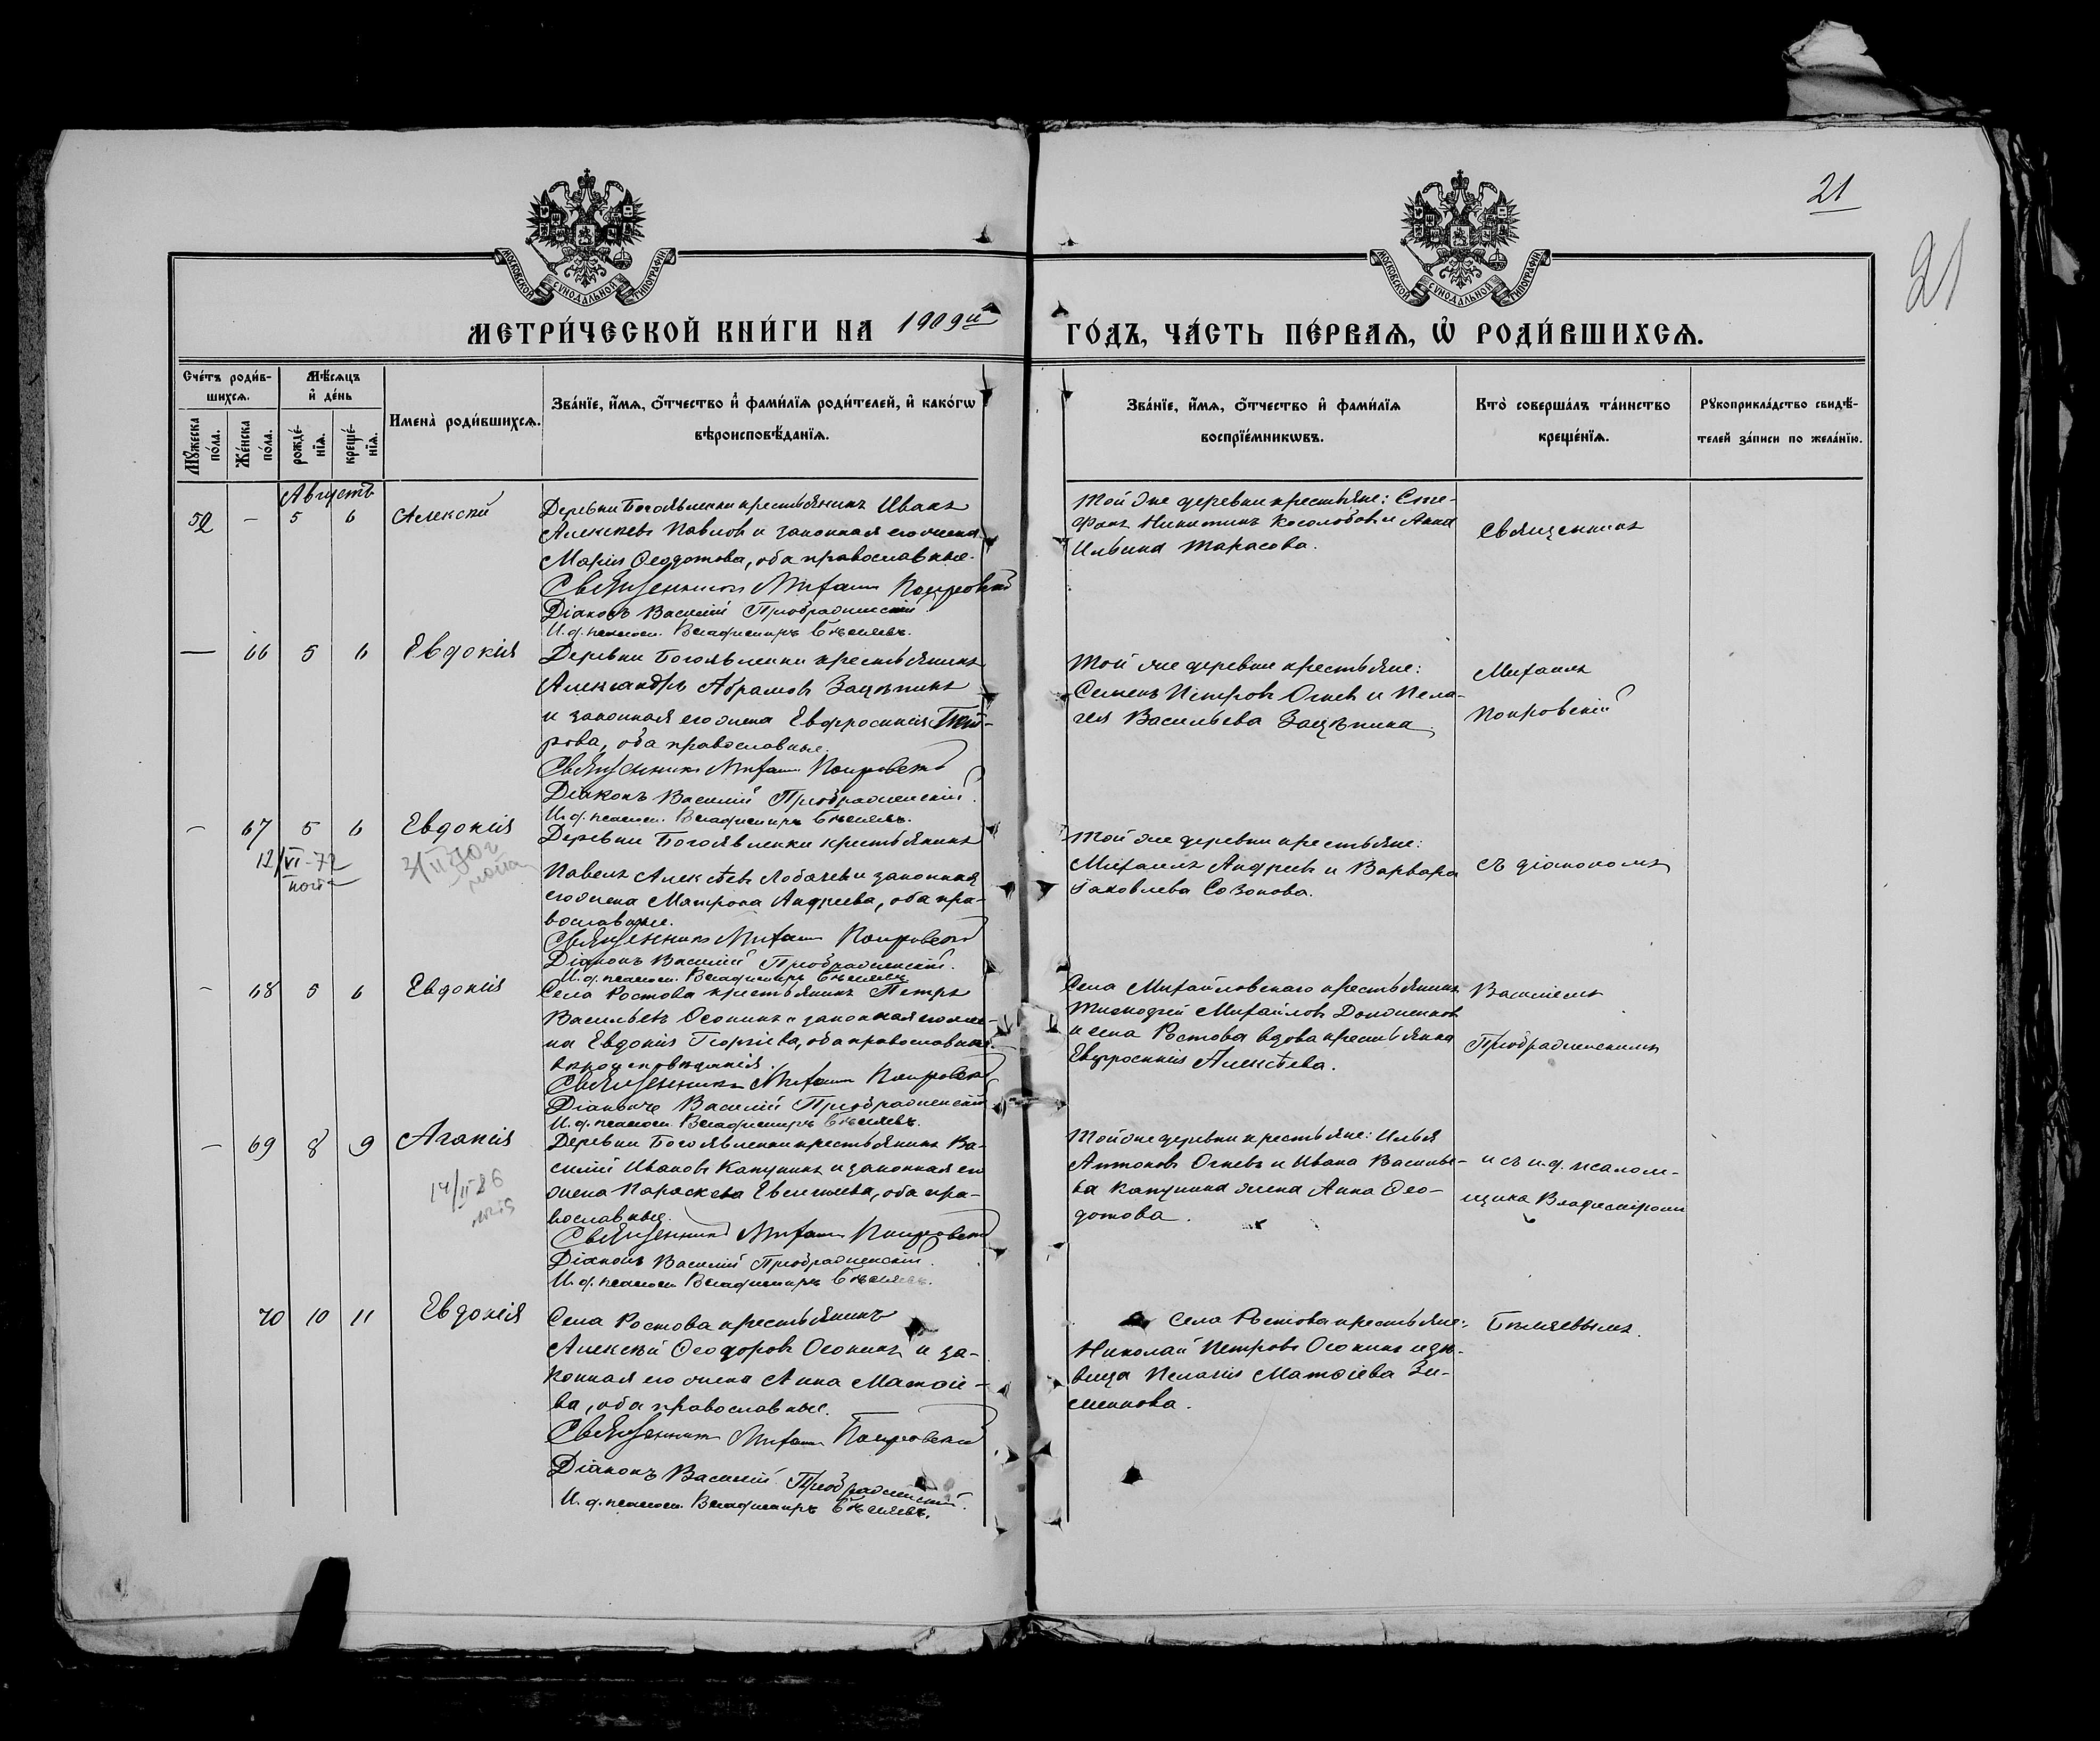 21
21
МОСКОВСКОЙ СѴНОДАЛЬНОЙ ТИПОГРАФІИ
МОСКОВСКОЙ СѴНОДАЛЬНОЙ ТИПОГРАФІИ
МЕТРИ́ЧЕСКОЙ КНИ́ГИ НА 1909й ГО́ДЪ, ЧА́СТЬ ПЕ́РВАѦ, Ѡ҆ РОДИ́ВШИХСѦ.
Сче́тъ роди́в-
шихсѧ.
Мꙋ́жеска по́ла.
Же́нска по́ла.
Мѣ́сѧцъ
и҆ де́нь
рожде́-
нїѧ.
креще́-
нїѧ.
Имена̀ роди́вшихсѧ.
Зва́нїе, и҆́мѧ, ѻ҆́тчество и҆ фами́лїѧ роди́телей, и҆ како́гѡ
вѣроисповѣ́данїѧ.
Зва́нїе, и҆́мѧ, ѻ҆́тчество и҆ фами́лїѧ
воспрїе́мникѡвъ.
Кто̀ соверша́лъ та́инство
креще́нїѧ.
Рꙋкоприкла́дство свидѣ́-
телей за́писи по жела́нїю.
Августъ
52 – 5 6 Алексѣй
Деревни Богоявленки крестьянинъ Иванъ
Алексѣевъ Павловъ и законная его жена
Марія Ѳеодотова, оба православные.
Священникъ Михаилъ Покровскій
Діаконъ Василій Преображенскій
И. д. псаломщ. Владимиръ Бѣляевъ.
Той же деревни крестьяне: Сте-
фанъ Никитинъ Косолобовъ и Анна
Ильина Тарасова.
Священникъ
— 66 5 6 Евдокія
Деревни Богоявленки крестьянинъ
Александръ Абрамовъ Зацѣпинъ
и законная его жена Евфросинія Пет-
рова, оба православные.
Священникъ Михаилъ Покровскій
Діаконъ Василій Преображенскій.
И. д. псаломщ. Владимиръ Бѣляевъ.
Той же деревни крестьяне:
Семенъ Петровъ Огневъ и Пела-
гея Васильева Зацѣпина
Михаилъ
Покровскій
– 67 5 6 Евдокія
12/VI-72
Деревни Богоявленки крестьянинъ
Павелъ Алексѣевъ Лобачевъ и законная
его жена Матрона Андреева, оба пра-
вославные.
Священникъ Михаилъ Покровскій
Діаконъ Василій Преображенскій.
И. д. псаломщ. Владимиръ Бѣляевъ
Той же деревни крестьяне:
Михаилъ Андреевъ и Варвара
Іаковлева Созонова.
съ діакономъ
– 68 5 6 Евдокія
Села Ростова крестьянинъ Петръ
Васильевъ Осокинъ и законная его же-
на Евдокія Георгіева, оба православнаго
вѣроисповѣданія.
Священникъ Михаилъ Покровскій
Діаконъ Василій Преображенскій
И. д. псаломщ. Владимиръ Бѣляевъ.
Села Михайловскаго крестьянинъ
Тимофей Михайловъ
и села Ростова вдова крестьянка
Евфросинія Алексѣева.
Василіемъ
Преображенскимъ
– 69 8 9 Агапія
14/II 86
Деревни Богоявленки крестьянинъ Ва-
силій Ивановъ Капунинъ и законная его
жена Параскева Евсигнеева, оба пра-
вославные
Священникъ Михаилъ Покровскій
Діаконъ Василій Преображенскій.
И. д. псаломщ. Владимиръ Бѣляевъ.
Той же деревни крестьяне: Илья
Антоновъ Огневъ и Ивана Василье-
ва Капунина жена Анна Ѳео-
дотова.
и съ и. д. псалом-
щика Владиміромъ
70 10 11 Евдокія
Села Ростова крестьянинъ
Алексѣй Ѳеодоровъ Осокинъ и за-
конная его жена Анна Матѳіе-
ва, оба православные.
Священникъ Михаилъ Покровскій
Діаконъ Василій Преображенскій.
И. д. псаломщ. Владимиръ Бѣляевъ.
Села Ростова крестьяне:
Николай Петровъ Осокинъ и дѣ-
вица Пелагія Матѳіева Зи-
менкова.
Бѣляевымъ.